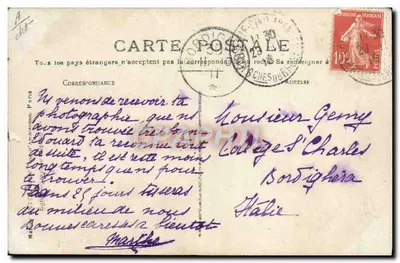 CARTE POSTALE
Tous les pays étrangers n'acceptent pas la correspondance au recto. Se renseigner à
CORRESPONDANCE
ADRESSE
Nous venons de recevoir ta
photographie, que ns
avons trouvée très
Edouard l'a reconnu tout
de suite, il est resté moins
longtemps que ns pour
te trouver!
Dans 25 jours tu seras
au milieu de nous
Bonnes caresses à bientôt
Marthe
Monsieur Gemy
Collège St Charles
Bordighera
Italie
10